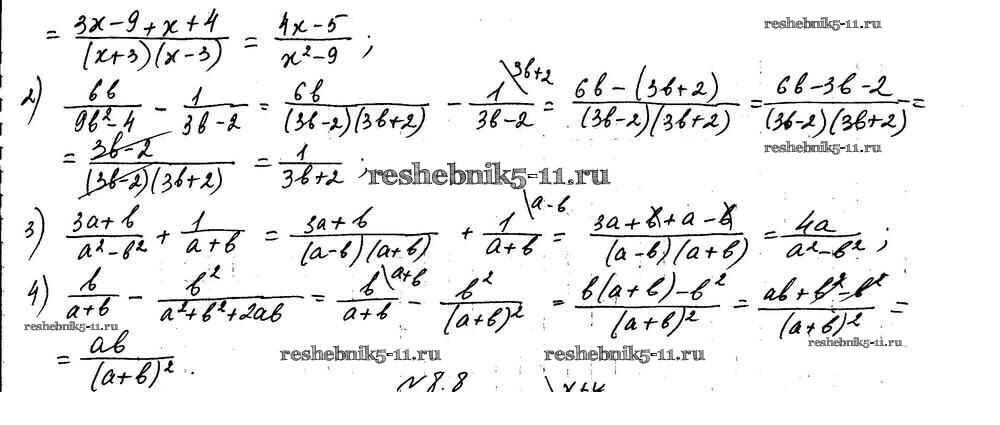 = (3x-9+x+4)/((x+3)(x-3)) = (4x-5)/(x²-9) ;
reshebnik5-11.ru
2) 6b/(9b²-4) - 1/(3b-2) = 6b/((3b-2)(3b+2)) - 1\3b+2/(3b-2) = (6b-(3b+2))/((3b-2)(3b+2)) = (6b-3b-2)/((3b-2)(3b+2)) =
reshebnik5-11.ru
= (3b-2)/((3b-2)(3b+2)) = 1/(3b+2) ;
reshebnik5-11.ru
3) (3a+b)/(a²-b²) + 1/(a+b) = (3a+b)/((a-b)(a+b)) + 1\a-b/(a+b) = (3a+b+a-b)/((a-b)(a+b)) = 4a/(a²-b²) ;
4) b/(a+b) - b²/(a²+b²+2ab) = b\a+b/(a+b) - b²/(a+b)² = (b(a+b)-b²)/(a+b)² = (ab+b²-b²)/(a+b)² =
reshebnik5-11.ru
reshebnik5-11.ru
= ab/(a+b)² .
reshebnik5-11.ru
reshebnik5-11.ru
№8.8